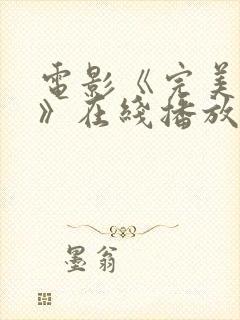 電影《完美
》在綫播放
墨翁